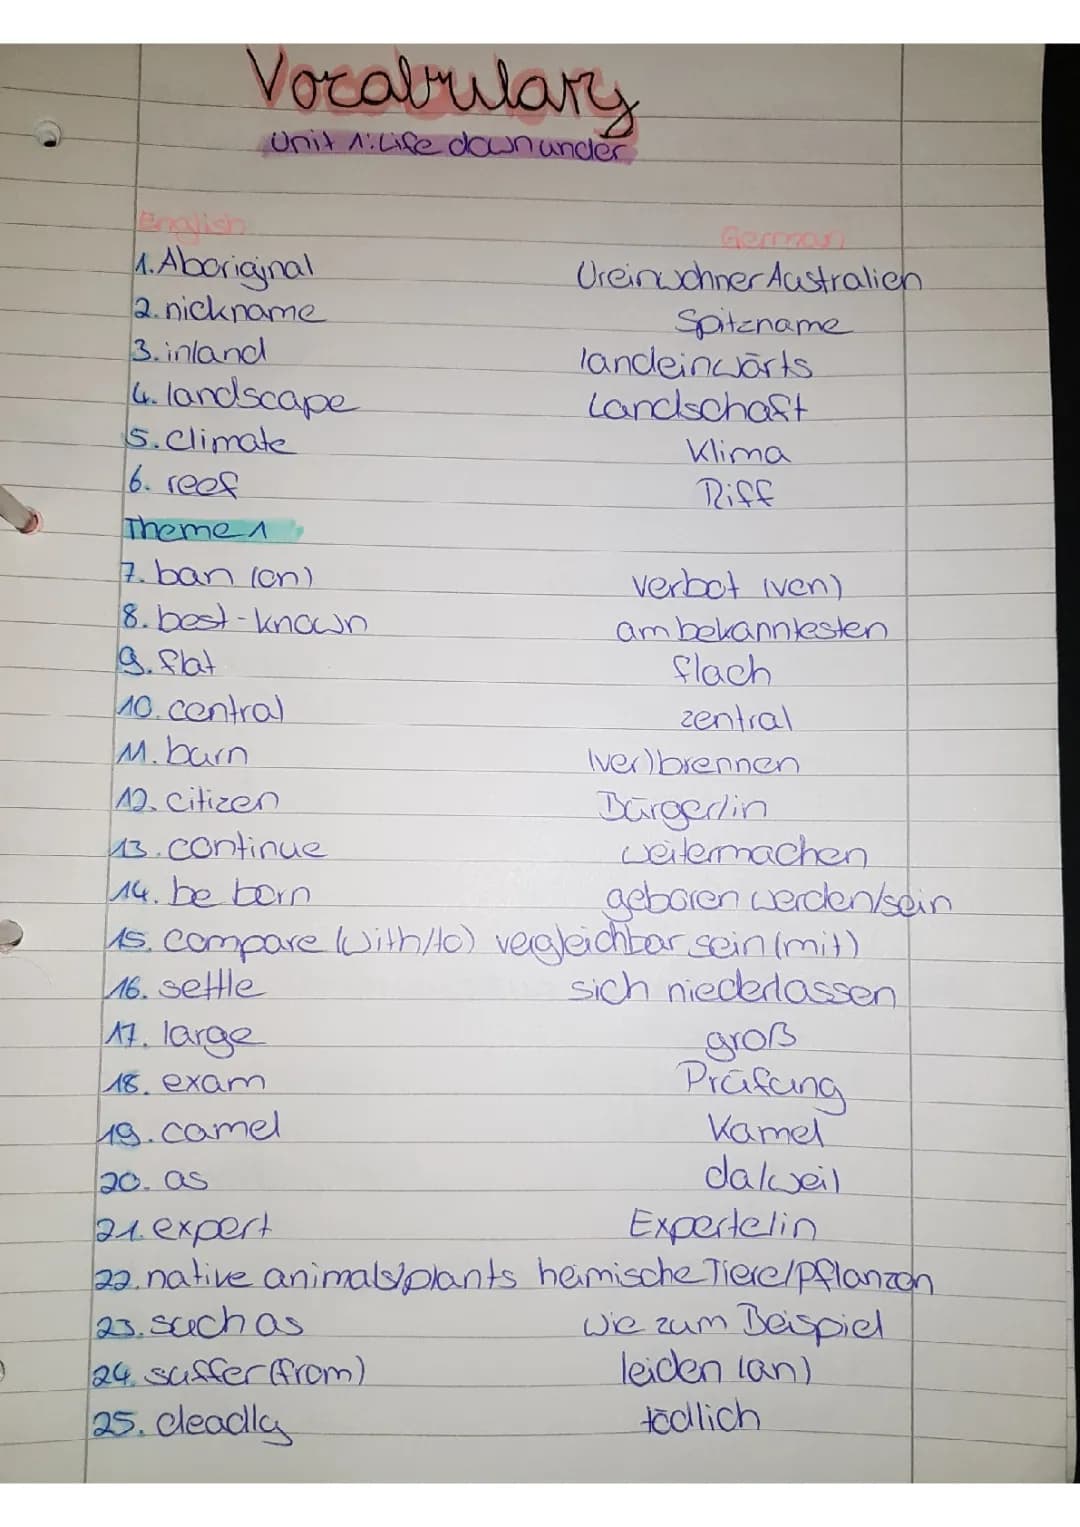 Vocabulary
Unit 1: Life down under
English German
1. Aboriginal Ureinwohner Australien
2. nickname Spitzname
3. inland landeinwärts
4. landscape Landschaft
5. climate Klima
6. reef Riff
Theme 1
7. ban (on) verbot (von)
8. best-known am bekanntesten
9. flat flach
10. central zentral
11. burn (ver)brennen
12. citizen Bürger/in
13. continue weitermachen
14. be born geboren werden/sein
15. compare (with/to) vergleichbar sein (mit)
16. settle sich niederlassen
17. large groß
18. exam Prüfung
19. camel Kamel
20. as da/weil
21. expert Experte/in
22. native animals/plants heimische Tiere/Pflanzen
23. such as wie zum Beispiel
24. suffer (from) leiden (an)
25. deadly tödlich